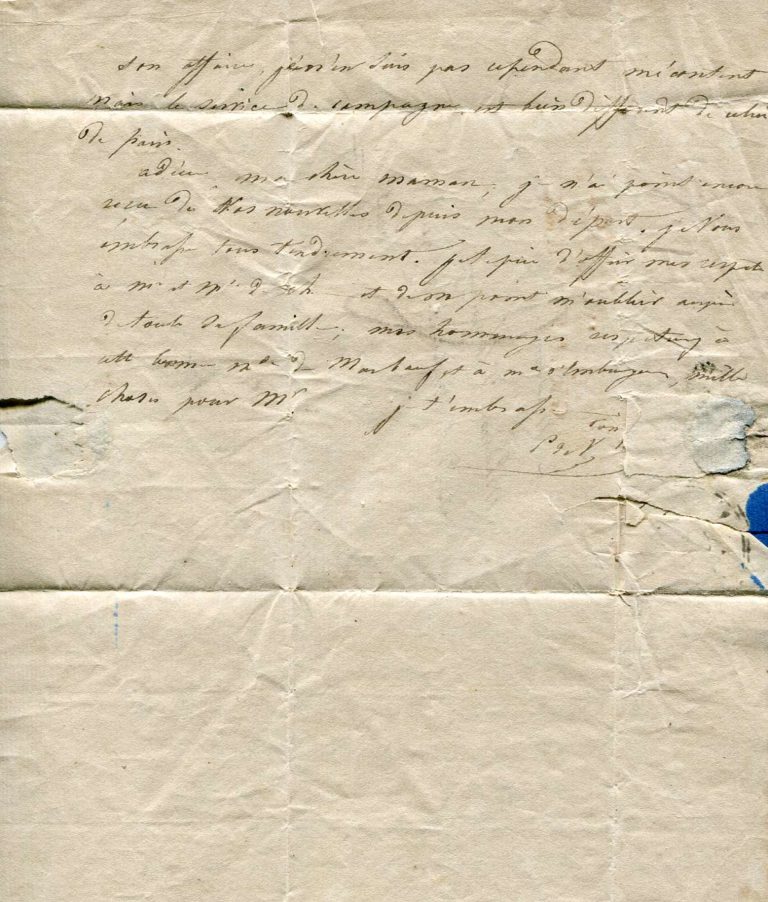 son affaire, je n'en suis pas cependant mécontent
mais le service de campagne est bien différent de celui
de paris.
adieu, ma chère maman, je n'ai point encore
reçu de vos nouvelles depuis mon départ. je vous
embrasse tous tendrement. je te prie d'offrir mes respects
à mr et me de et de ne point m'oublier auprès
de toute sa famille; mes hommages respectueux à
me de Marbeuf, et à me mille
choses pour Mr je t'embrasse
ton